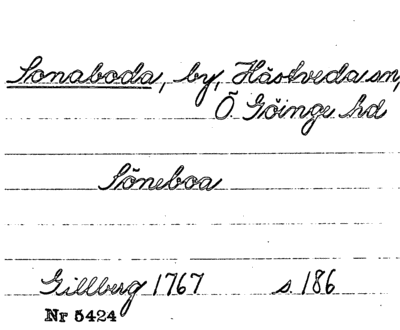 Sonaboda, by, Hästveda sn,
Ö Göinge hd
Söneboa
Gillberg 1767 s. 186
Nr 5424